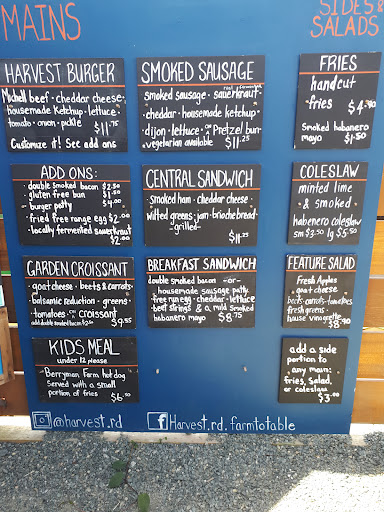 MAINS
SIDES &
SALADS
HARVEST BURGER
Michell beef · cheddar cheese ·
· housemade ketchup · lettuce ·
tomato · onion · pickle
$11.75
Customize it! See add ons
ADD ONS:
· double smoked bacon $2.50
· gluten free bun $1.50
· burger patty $4.00
· fried free range egg $2.00
· locally fermented sauerkraut
$2.00
GARDEN CROISSANT
· goat cheese · beets & carrots ·
balsamic reduction · greens ·
tomatoes · on croissant
add double smoked bacon $2.50
$9.55
KIDS MEAL
under 12 please
· Berryman Farm hot dog
Served with a small
portion of fries
$6.00
SMOKED SAUSAGE
smoked sausage · sauerkraut ·
· cheddar · housemade ketchup ·
· dijon · lettuce · on Pretzel bun ·
vegetarian available
$11.25
CENTRAL SANDWICH
Smoked ham · cheddar cheese ·
wilted greens · jam · brioche bread
- grilled -
$11.25
BREAKFAST SANDWICH
double smoked bacon - or -
· housemade sausage patty ·
· free run egg · cheddar · lettuce
· beet strings & a mild smoked
habanero mayo
FRIES
handcut
· fries
Smoked habanero
mayo $1.50
COLESLAW
minted lime
& smoked
habanero coleslaw
sm $3.50 lg $5.50
FEATURE SALAD
Fresh Apples
· goat cheese ·
beets · carrots · tomatoes
fresh greens ·
house vinaigrette
$8.90
add a side
portion to
any main:
fries, salad,
or coleslaw
$3.00
@harvest.rd
Harvest.rd.farmtotable